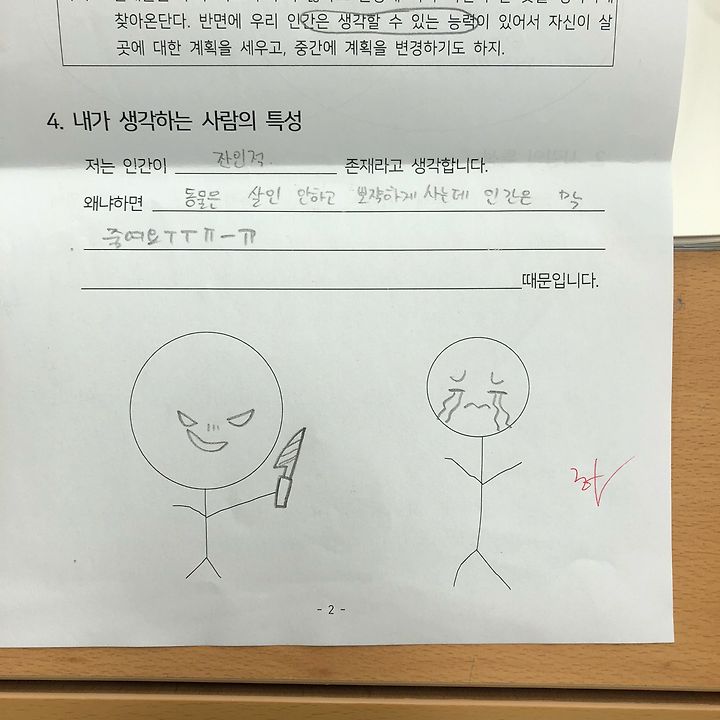 찾아온단다. 반면에 우리 인간은 생각할 수 있는 능력이 있어서 자신이 살
곳에 대한 계획을 세우고, 중간에 계획을 변경하기도 하지.
4. 내가 생각하는 사람의 특성
저는 인간이 잔인적 존재라고 생각합니다.
왜냐하면 동물은 살인 안하고 뽀쨕하게 사는데 인간은 막
죽여요ㅜㅜㅠㅡㅠ
때문입니다.
- 2 -